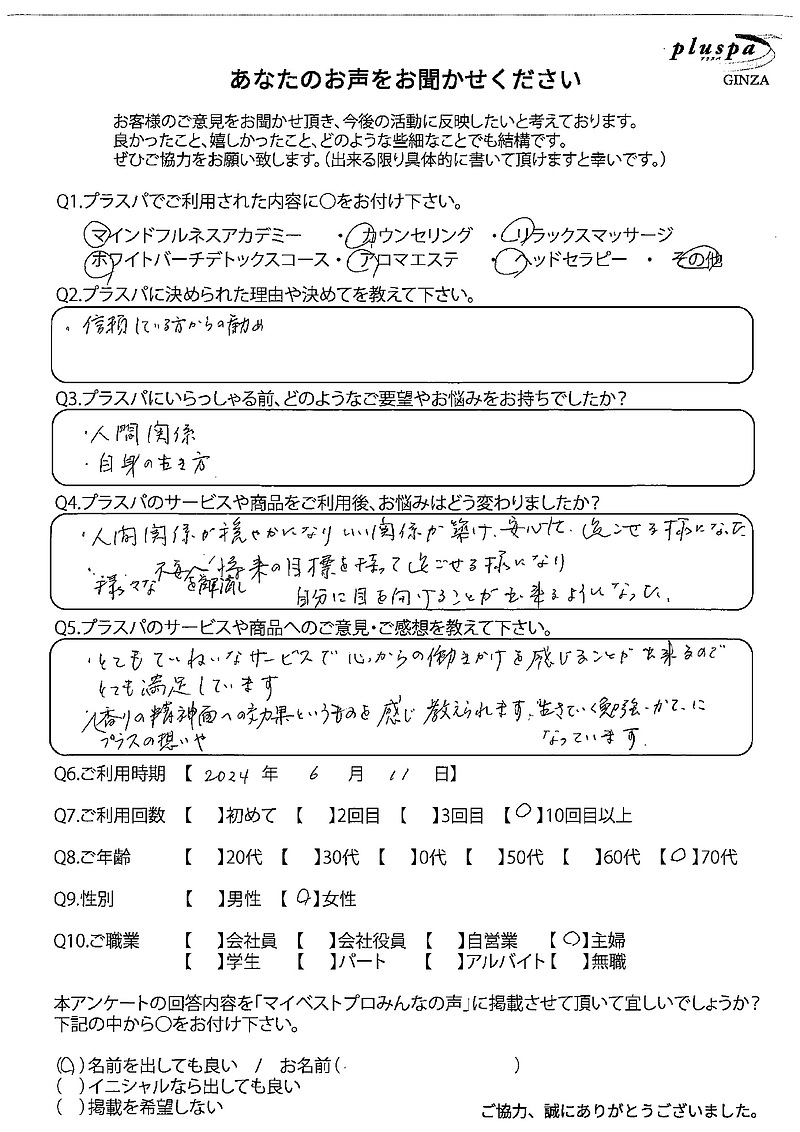 pluspa
プラスパ
GINZA
あなたのお声をお聞かせください
お客様のご意見をお聞かせ頂き、今後の活動に反映したいと考えております。
良かったこと、嬉しかったこと、どのような些細なことでも結構です。
ぜひご協力をお願い致します。（出来る限り具体的に書いて頂けますと幸いです。）
Q1.プラスパでご利用された内容に〇をお付け下さい。
マインドフルネスアカデミー ・カウンセリング ・リラックスマッサージ
ホワイトバーチデトックスコース・アロマエステ ・ヘッドセラピー ・ その他
Q2.プラスパに決められた理由や決めてを教えて下さい。
。信頼している方からの勧め
Q3.プラスパにいらっしゃる前、どのようなご要望やお悩みをお持ちでしたか？
・人間関係
・自身の生き方
Q4.プラスパのサービスや商品をご利用後、お悩みはどう変わりましたか？
・人間関係が穏やかになりいい関係が築け、安心して、過ごせる様になった
・様々な不安を解消し 将来の目標を持って過ごせる様になり
自分に目を向けることが出来るようになった。
Q5.プラスパのサービスや商品へのご意見・ご感想を教えて下さい。
・とてもていねいなサービスで心からの働きかけを感じることが出来るので
とても満足しています
・香りの精神面への効果というものを感じ教えられます。生きていく勉強にかてに
プラスの想いや なっています。
Q6.ご利用時期 【 2024 年 6 月 11 日】
Q7.ご利用回数 【 】初めて 【 】2回目 【 】3回目 【〇】10回目以上
Q8.ご年齢 【 】20代 【 】30代 【 】0代 【 】50代 【 】60代 【〇】70代
Q9.性別 【 】男性 【〇】女性
Q10.ご職業 【 】会社員 【 】会社役員 【 】自営業 【〇】主婦
【 】学生 【 】パート 【 】アルバイト【 】無職
本アンケートの回答内容を「マイベストプロみんなの声」に掲載させて頂いて宜しいでしょうか？
下記の中から〇をお付け下さい。
(〇)名前を出しても良い / お名前( )
( )イニシャルなら出しても良い
( )掲載を希望しない
ご協力、誠にありがとうございました。